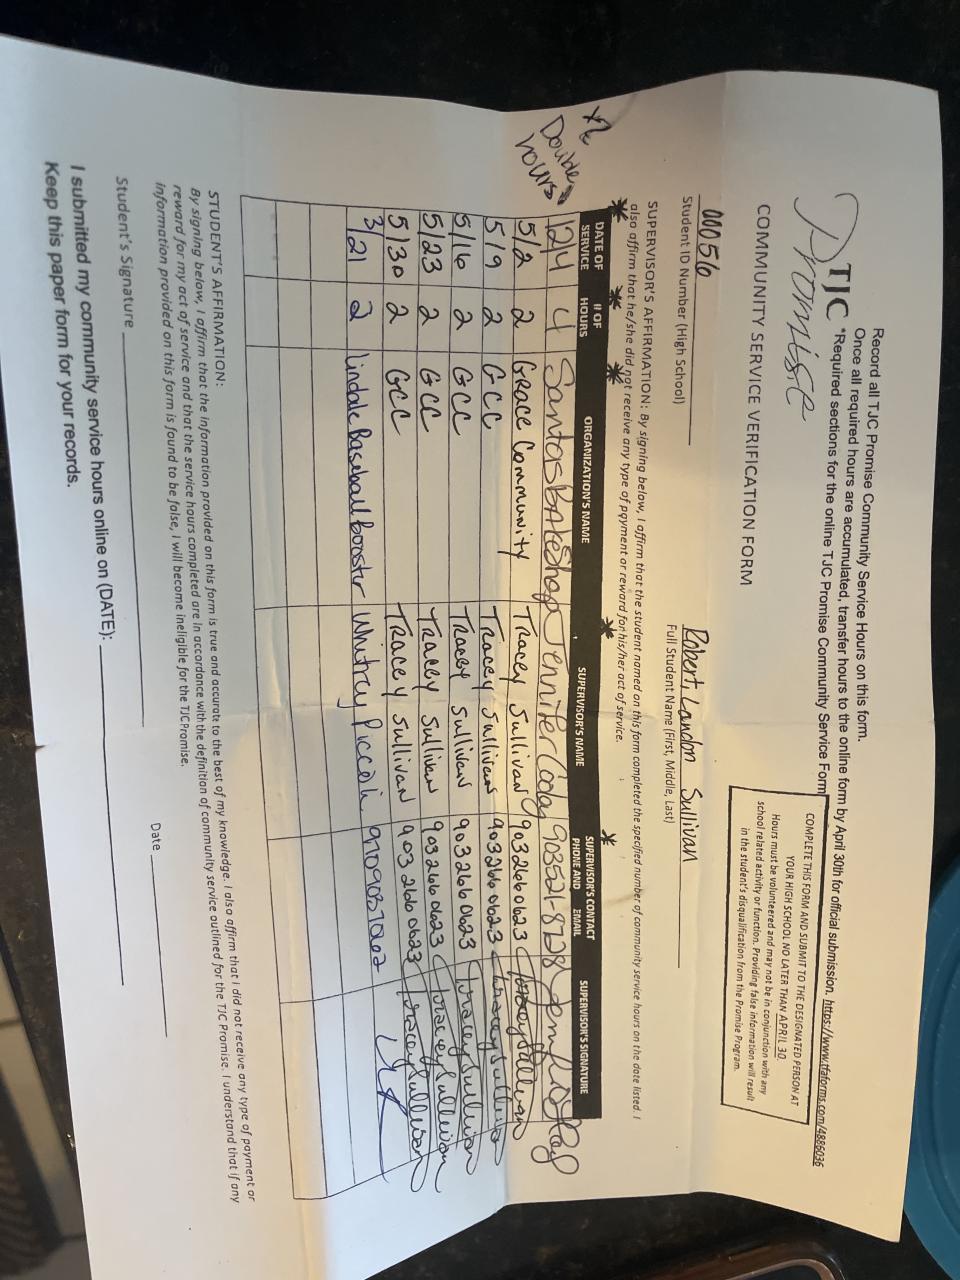 Record all TJC Promise Community Service Hours on this form.
Once all required hours are accumulated, transfer hours to the online form by April 30th for official submission. https://www.tfaforms.com/4886036
*Required sections for the online TJC Promise Community Service Form
TJC
Promise
COMPLETE THIS FORM AND SUBMIT TO THE DESIGNATED PERSON AT
YOUR HIGH SCHOOL NO LATER THAN APRIL 30.
Hours must be volunteered and may not be in conjunction with any
school related activity or function. Providing false information will result
in the student's disqualification from the Promise Program.
COMMUNITY SERVICE VERIFICATION FORM
00056 Robert, Landon Sullivan
Student ID Number (High School) Full Student Name (First, Middle, Last)
SUPERVISOR'S AFFIRMATION: By signing below, I affirm that the student named on this form completed the specified number of community service hours on the date listed. I
also affirm that he/she did not receive any type of payment or reward for his/her act of service.
* * * * *
DATE OF SERVICE # OF HOURS ORGANIZATION'S NAME SUPERVISOR'S NAME SUPERVISOR'S CONTACT PHONE AND EMAIL SUPERVISOR'S SIGNATURE
x2
Double
hours
12/4 4 Santas Bakeshop Jennifer Coday 903521-8728
5/2 2 Grace Community Tracey Sullivan 903 266 0623 Tracey Sullivan
5/9 2 GCC Tracey Sullivan 903 266 0623 Tracey Sullivan
5/16 2 GCC Tracey Sullivan 903 266 0623 Tracey Sullivan
5/23 2 GCC Tracey Sullivan 903 266 0623 Tracey Sullivan
5/30 2 GCC Tracey Sullivan 903 266 0623 Tracey Sullivan
3/21 2 Lindale Baseball booster Whitney
STUDENT'S AFFIRMATION:
By signing below, I affirm that the information provided on this form is true and accurate to the best of my knowledge. I also affirm that I did not receive any type of payment or
reward for my act of service and that the service hours completed are in accordance with the definition of community service outlined for the TJC Promise. I understand that if any
information provided on this form is found to be false, I will become ineligible for the TJC Promise.
Student's Signature Date
I submitted my community service hours online on (DATE):
Keep this paper form for your records.